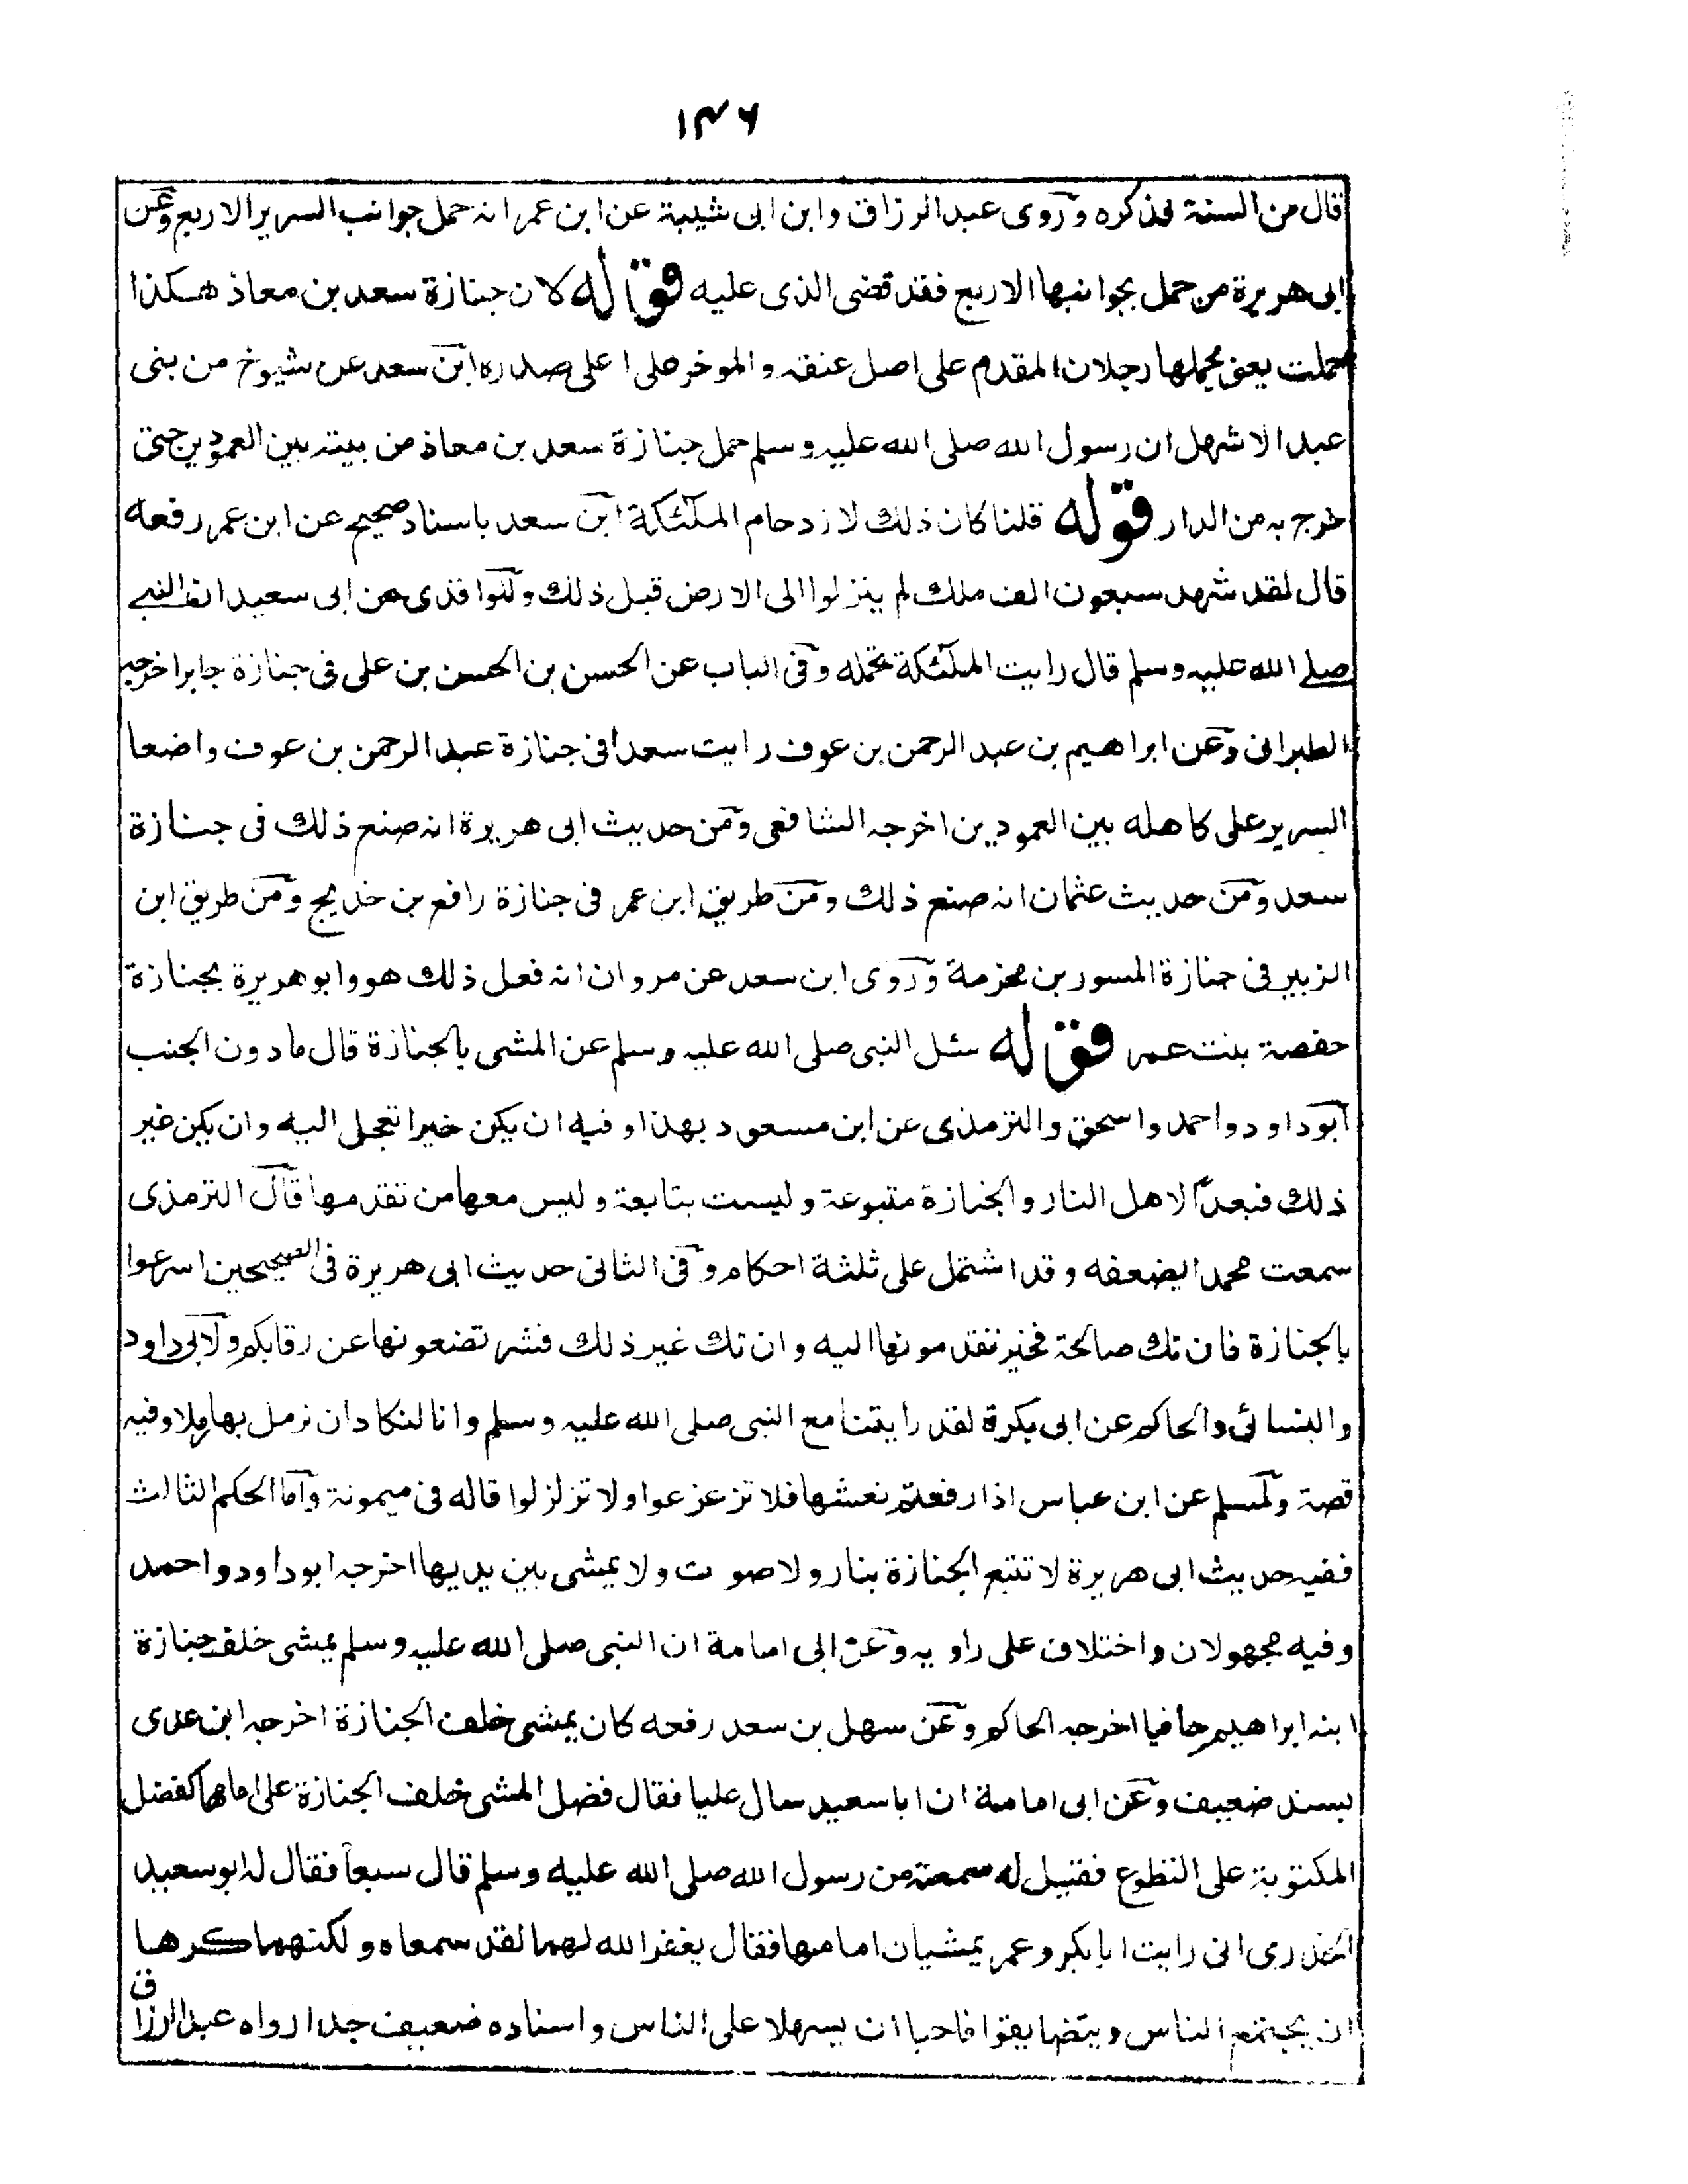 ١٤٦
قال من السنة فذكره وروى عبد الرزاق وابن ابى شيبة عن ابن عمر انه حمل جوانب السرير الاربع وعن
ابى هريرة من حمل بجوانبها الاربع فقد قضى الذى عليه قوله لان جنازة سعد بن معاذ هكذا
حملت يعنى يحملها رجلان المقدم على اصل عنقه والموخر على اعلى صدره ابن سعد عن شيوخ من بنى
عبد الاشهل ان رسول الله صلى الله عليه وسلم حمل جنازة سعد بن معاذ من بيته بين العمودين حتى
خرج به من الدار قوله قلنا كان ذلك لازدحام الملئكة ابن سعد باسناد صحيح عن ابن عمر رفعه
قال لقد شهد سبعون الف ملك لم ينزلوا الى الارض قبل ذلك وللواقدى عن ابى سعيد ان النبى
صلے الله عليه وسلم قال رايت الملئكة تحمله وفى الباب عن الحسن بن الحسن بن على فى جنازة جابر اخرجه
الطبرانى وعن ابراهيم بن عبد الرحمن بن عوف رايت سعدا فى جنازة عبد الرحمن بن عوف واضعا
السرير على كاهله بين العمودين اخرجه الشافعى ومن حديث ابى هريرة انه صنع ذلك فى جنازة
سعد ومن حديث عثمان انه صنع ذلك ومن طريق ابن عمر فى جنازة رافع بن خديج ومن طريق ابن
الزبير فى جنازة المسور بن مخرمة وروى ابن سعد عن مروان انه فعل ذلك هو وابو هريرة بجنازة
حفصة بنت عمر قوله سئل النبى صلى الله عليه وسلم عن المشى بالجنازة قال ما دون الجنب
ابو داود واحمد واسحق والترمذى عن ابن مسعود بهذا وفيه ان يكن خيرا تعجل اليه وان يكن غير
ذلك فبعدًا لاهل النار والجنازة متبوعة وليست بتابعة وليس معها من تقدمها قال الترمذى
سمعت محمدا يضعفه وقد اشتمل على ثلثة احكام وفى الثانى حديث ابى هريرة فى الصحيحين اسرعوا
بالجنازة فان تك صالحة فخير تقدمونها اليه وان تك غير ذلك فشر تضعونها عن رقابكم ولابى داود
والنسائى والحاكم عن ابى بكرة لقد رايتنا مع النبى صلى الله عليه وسلم وانا لنكاد ان نرمل بها رملا وفيه
قصة ولمسلم عن ابن عباس اذا رفعتم نعشها فلا تزعزعوا ولا تزلزلوا قاله فى ميمونة واما الحكم الثالث
ففيه حديث ابى هريرة لا تتبع الجنازة بنار ولا صوت ولا يمشى بين يديها اخرجه ابو داود واحمد
وفيه مجهولان واختلاف على راويه وعن ابى امامة ان النبى صلى الله عليه وسلم يمشى خلف جنازة
ابنه ابراهيم حافيا اخرجه الحاكم وعن سهل بن سعد رفعه كان يمشى خلف الجنازة اخرجه ابن عدى
بسند ضعيف وعن ابى امامة ان ابا سعيد سال عليا فقال فضل المشى خلف الجنازة على امامها كفضل
المكتوبة على التطوع فقيل له سمعته من رسول الله صلى الله عليه وسلم قال سبعاً فقال له ابو سعيد
الخدرى انى رايت ابا بكر وعمر يمشيان امامها فقال يغفر الله لهما لقد سمعاه ولكنهما كرها
ان يجتمع الناس ويتضايقوا فاحبا ان يسهلا على الناس واسناده ضعيف جدا رواه عبد الرزاق